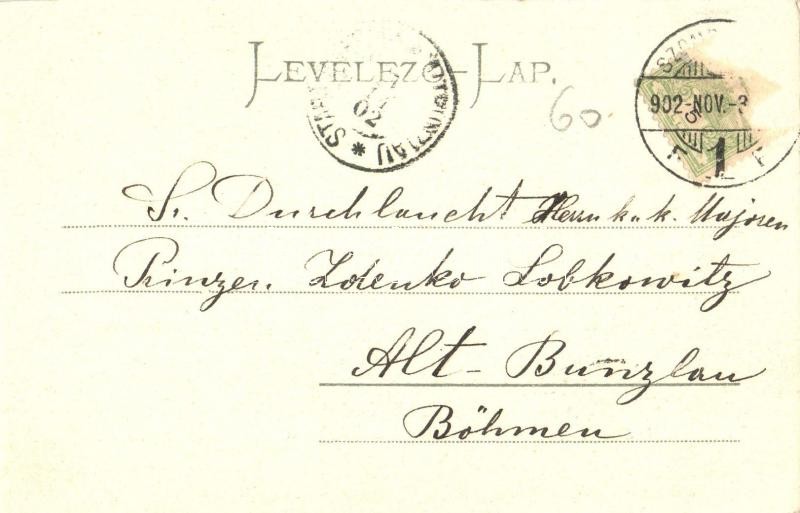 LEVELEZŐ-LAP.
02
902-NOV.-3
5
1
60.
Sr. Durchlaucht Herrn k. u. k. Majoren
Prinzen Zdenko Lobkowitz
Alt-Bunzlau
Böhmen